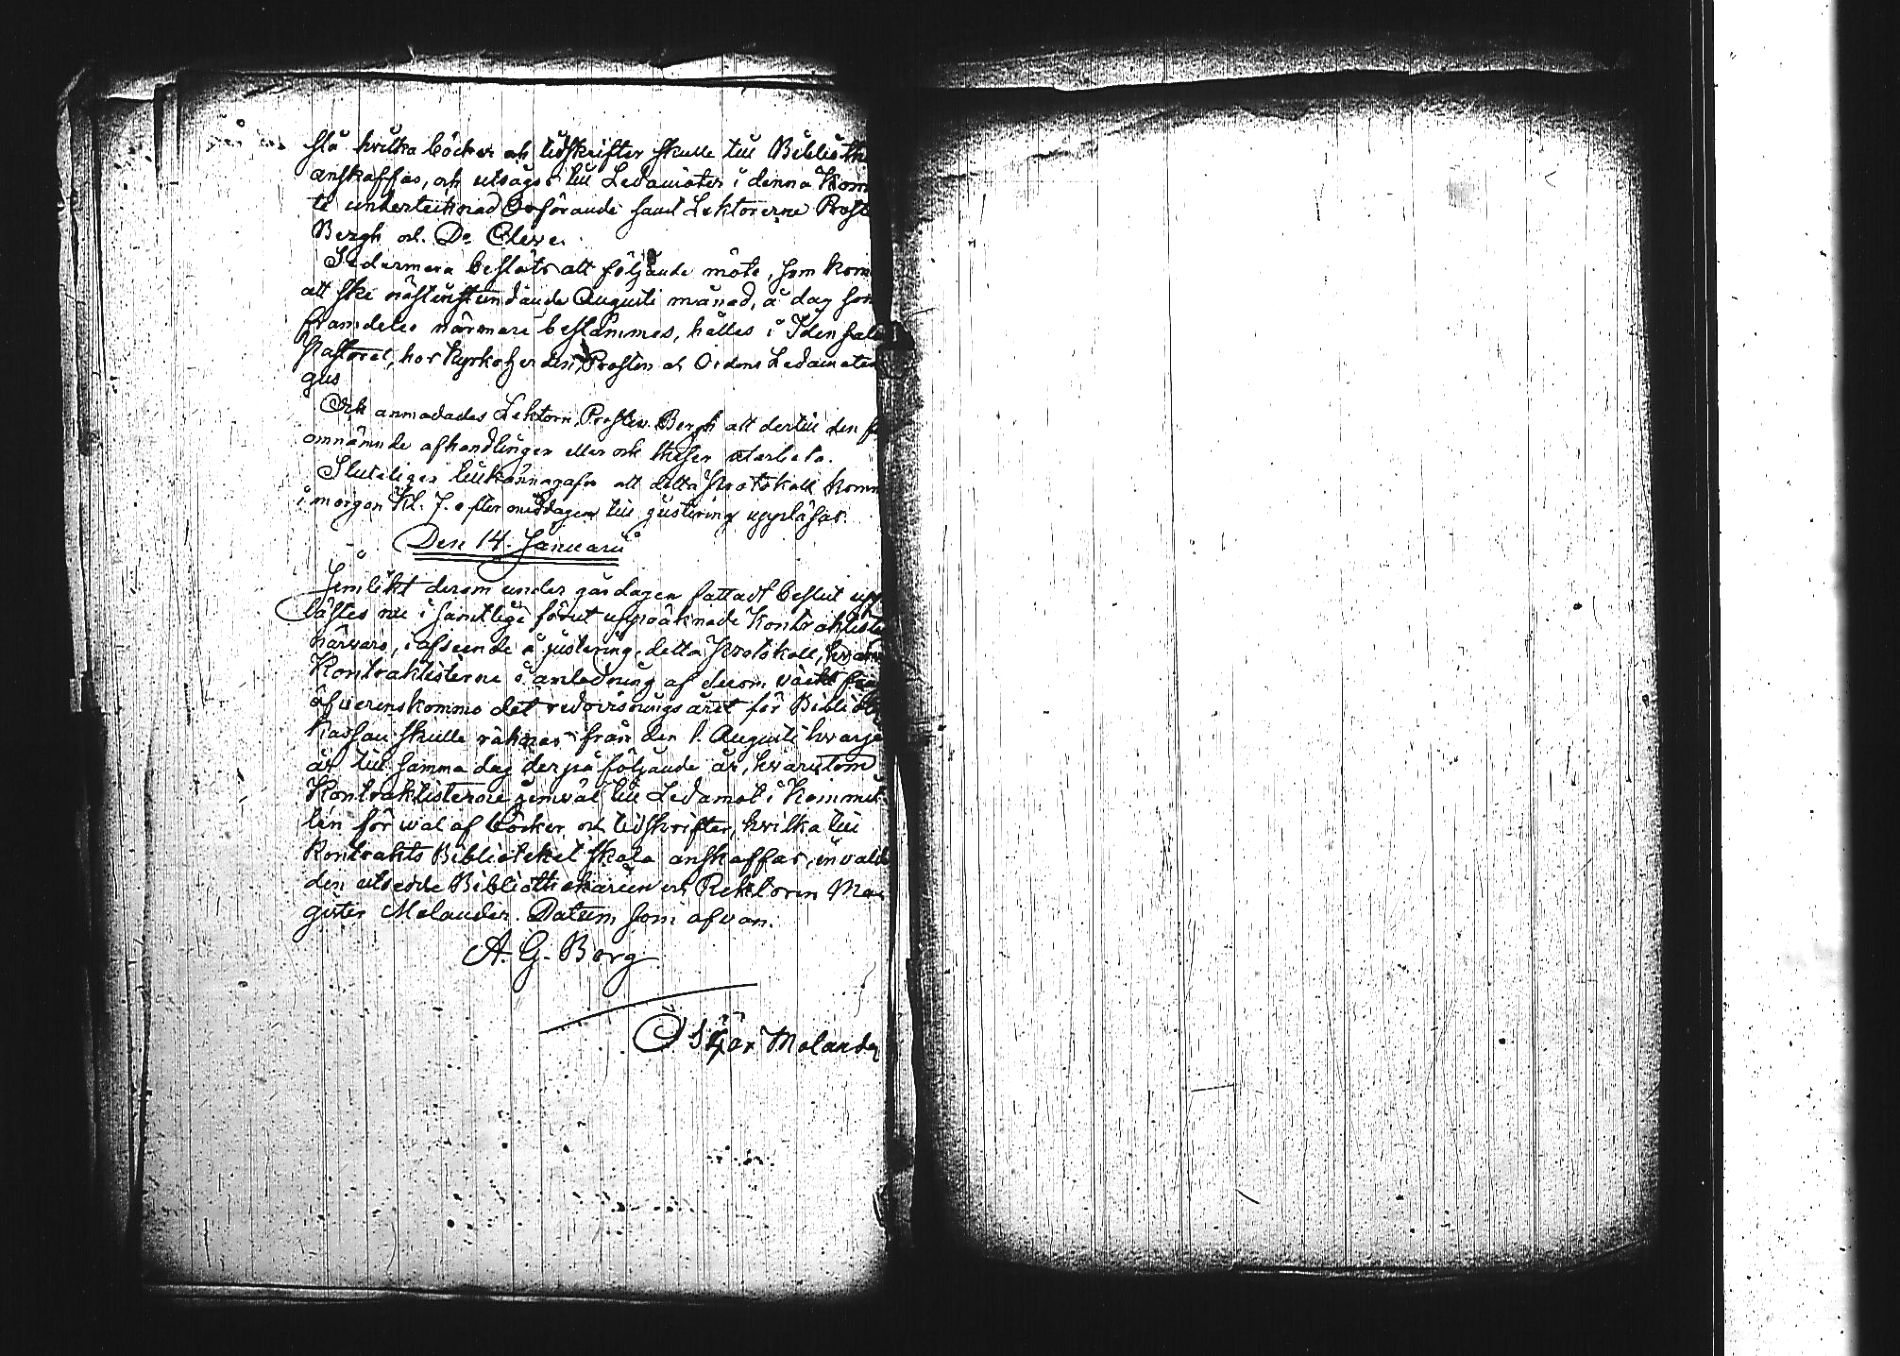 slå hvilka böcker och tidskrifter skulle till Biblioth
anskaffas, och utsågs till Ledamöter i denna Kom
té undertecknad Ordförande samt Lektorerne Prost
Bergh och Dr Cleve.
Sedermera beslöts att följande möte, som kom
att ske nästinstundande Augusti månad, å dag som
framdeles närmare bestämmes, hålles i
Pastorat, hos Kyrkoherden, Prosten och Ordens Ledamoten
gus
Och anmodades Lektorn, Prosten Bergh att dertill den
omnämnde afhandlingen eller och theser utarbeta.
Slutligen tillkännagafs att detta Protokoll komm
i morgon Kl. 7. eftermiddagen till justering uppläsas.
Den 14. Januarii
Jemlikt derom under gårdagen fattadt beslut upp
lästes nu i samtlige förut uppräknade Kontraktister
närvaro, i afseende å justering, detta Protokoll,
Kontraktisterne i anledning af derom väckt
öfverenskommo det redovisningsåret för Biblioth
Kassan skulle räknas från den 1. Augusti hvarje
år till samma dag derpå följande år, hvarutom
Kontraktisterne jemväl till Ledamot i Kommit-
tén för val af böcker och tidskrifter, hvilka till
Kontrakts Biblioteket skola anskaffas, invalde
den utsedde Bibliothekarien och Rektoren Ma
gister Melander. Datum som ofvan.
A. G. Borg
Oskar Melander